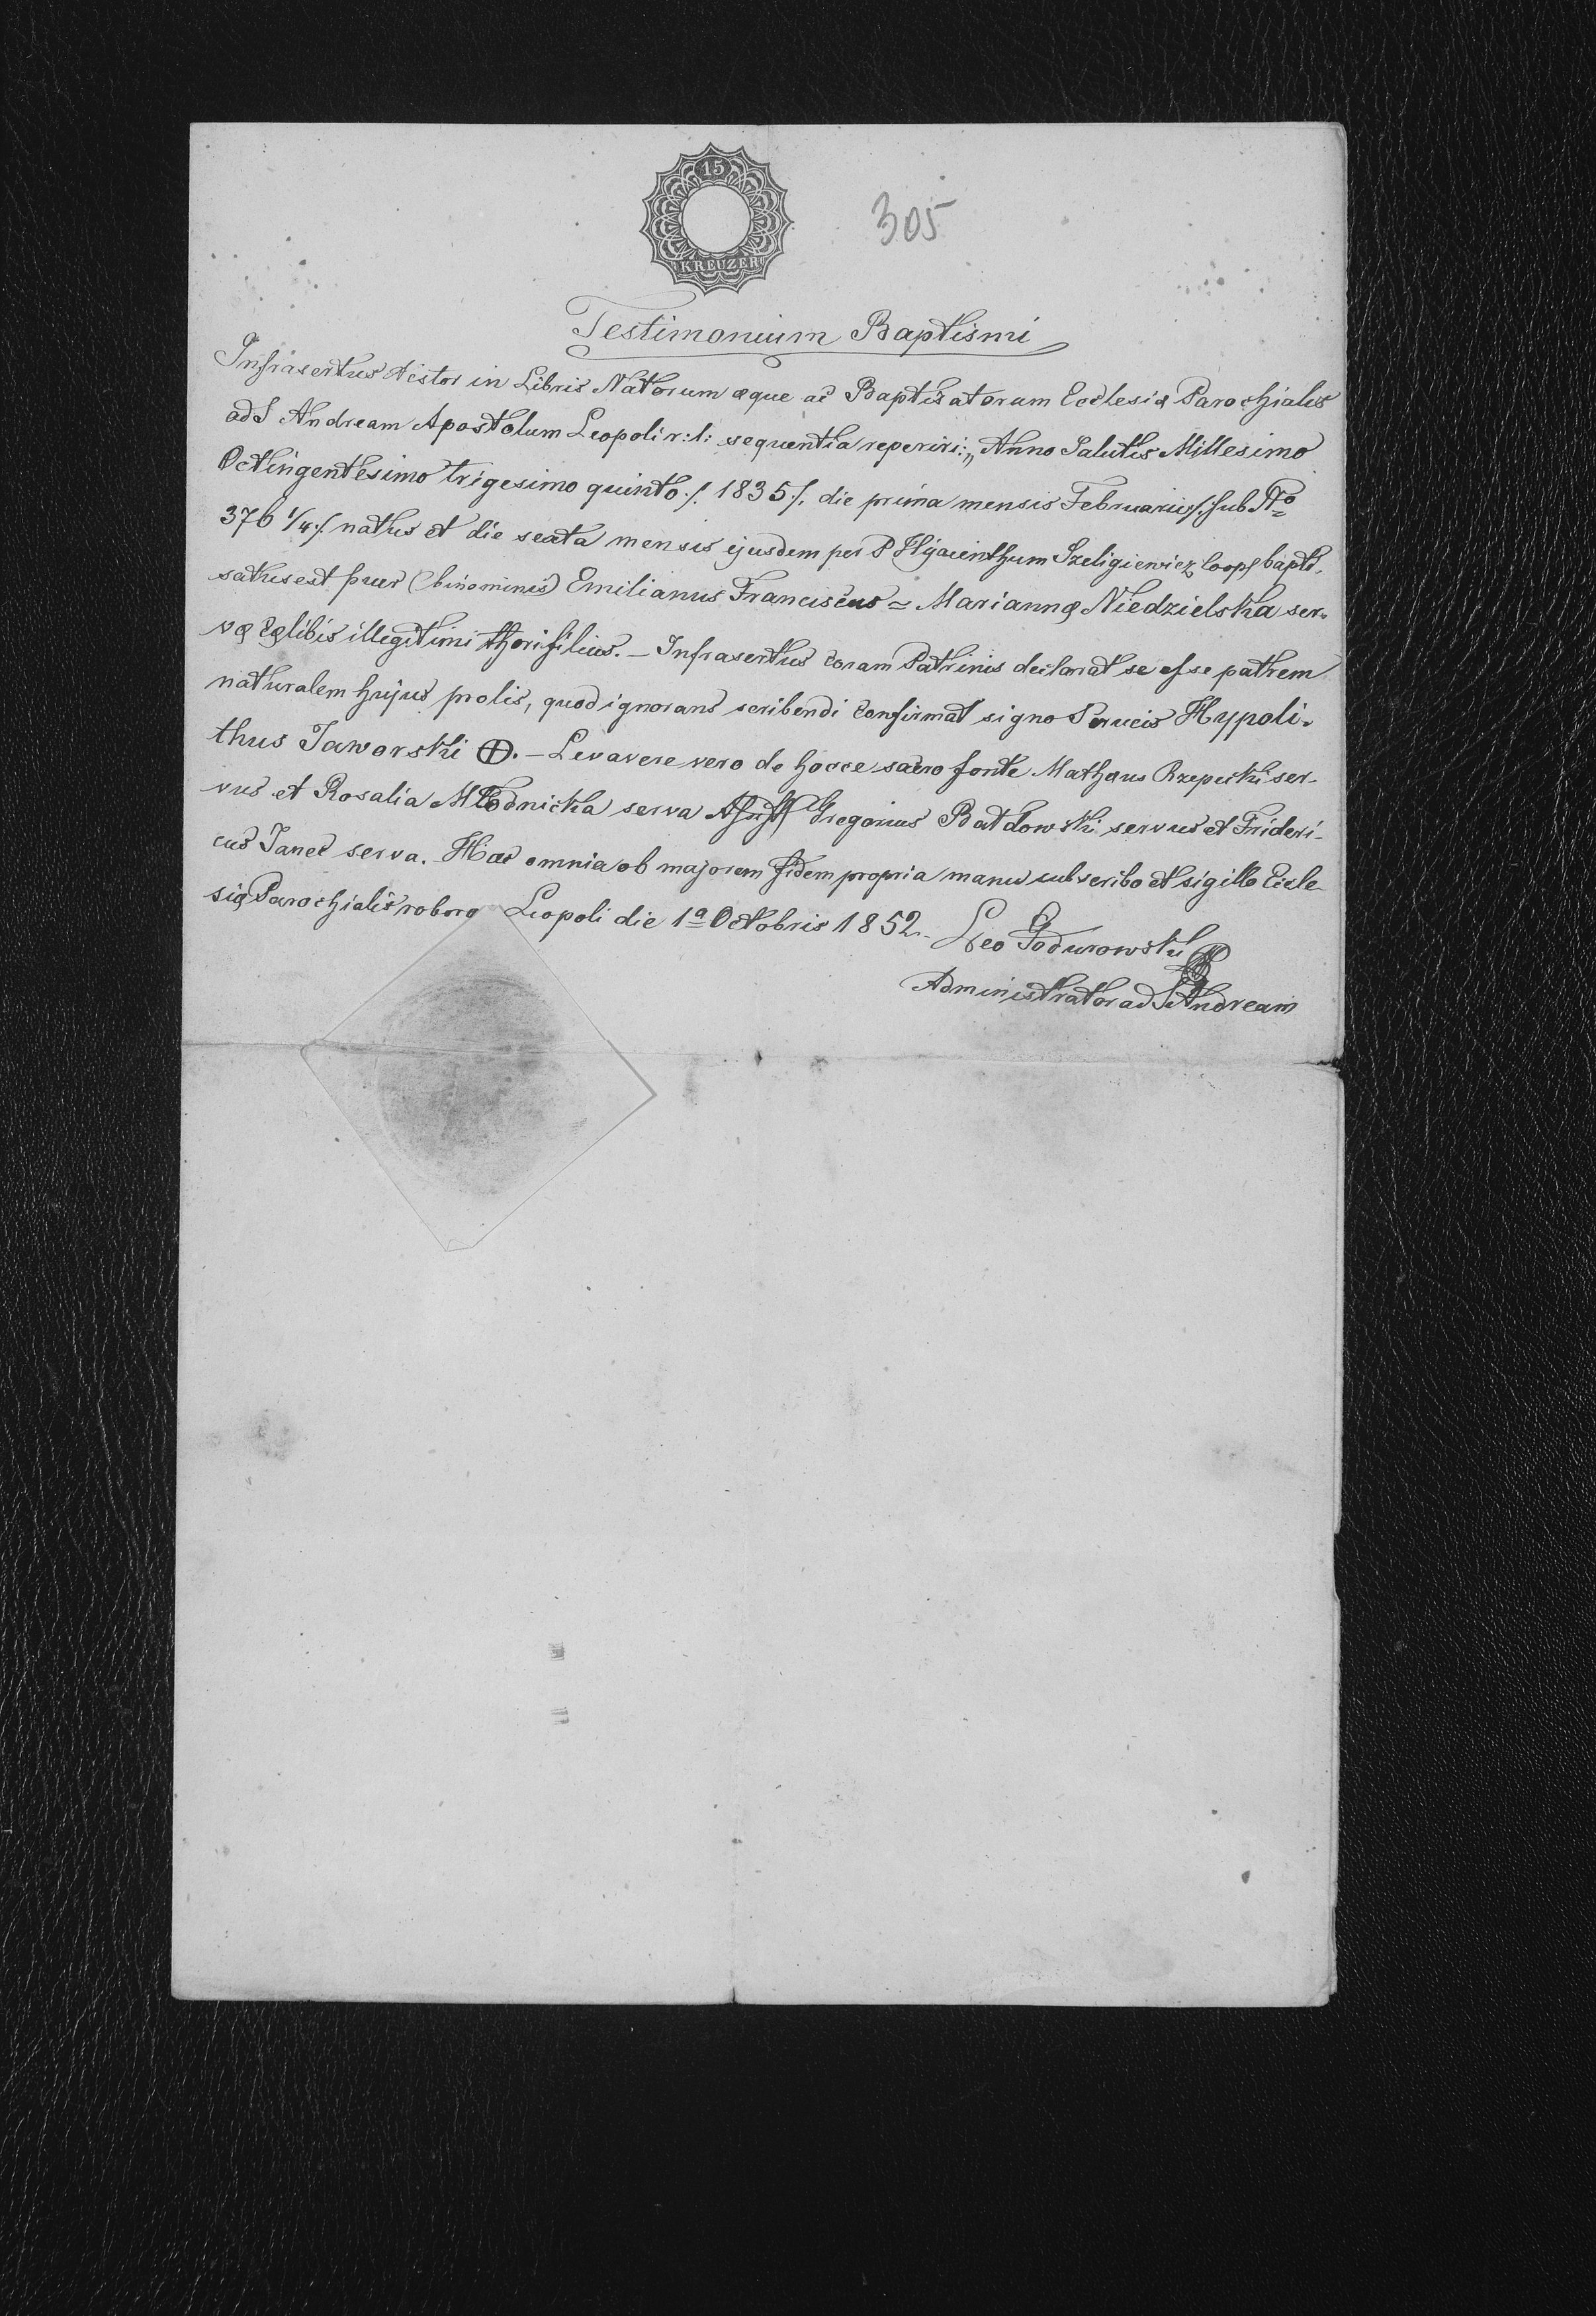 15
KREUZER
305
Testimonium Baptismi
Infrasertus testor in Libris Natorum æque ac Baptisatorum Ecclesiæ Parochialis
ad S Andream Apostolum Leopoli r: l: sequentia reperiri: „Anno Salutis Millesimo
Octingentesimo trigesimo quinto ./. 1835 ./. die prima mensis Februarii /: sub Nº
376 1/4 :/ natus et die sexta mensis ejusdem per P Hyacinthum Szeligiewicz Coop bapti-
satus est puer (binominis) Emilianus Franciscus = Mariannæ Niedzielska ser-
væ Cælibis illegitimi thori filius. – Infrasertus coram Patrinis declarat se esse patrem
naturalem hujus prolis, quod ignorans scribendi confirmat signo S crucis Hypoli-
thus Jaworski ⊕. – Levavere vero de hocce sacro fonte Mathæus Rzepecki ser-
vus et Rosalia Młodnicka serva Gregorius Batdowski servus et Frideri-
cus Janec serva. Hæc omnia ob majorem fidem propria manu subscribo et sigillo Eccle-
siæ Parochialis roboro Leopoli die 1ª Octobris 1852.
Leo Godurowski
Administrator ad S Andream